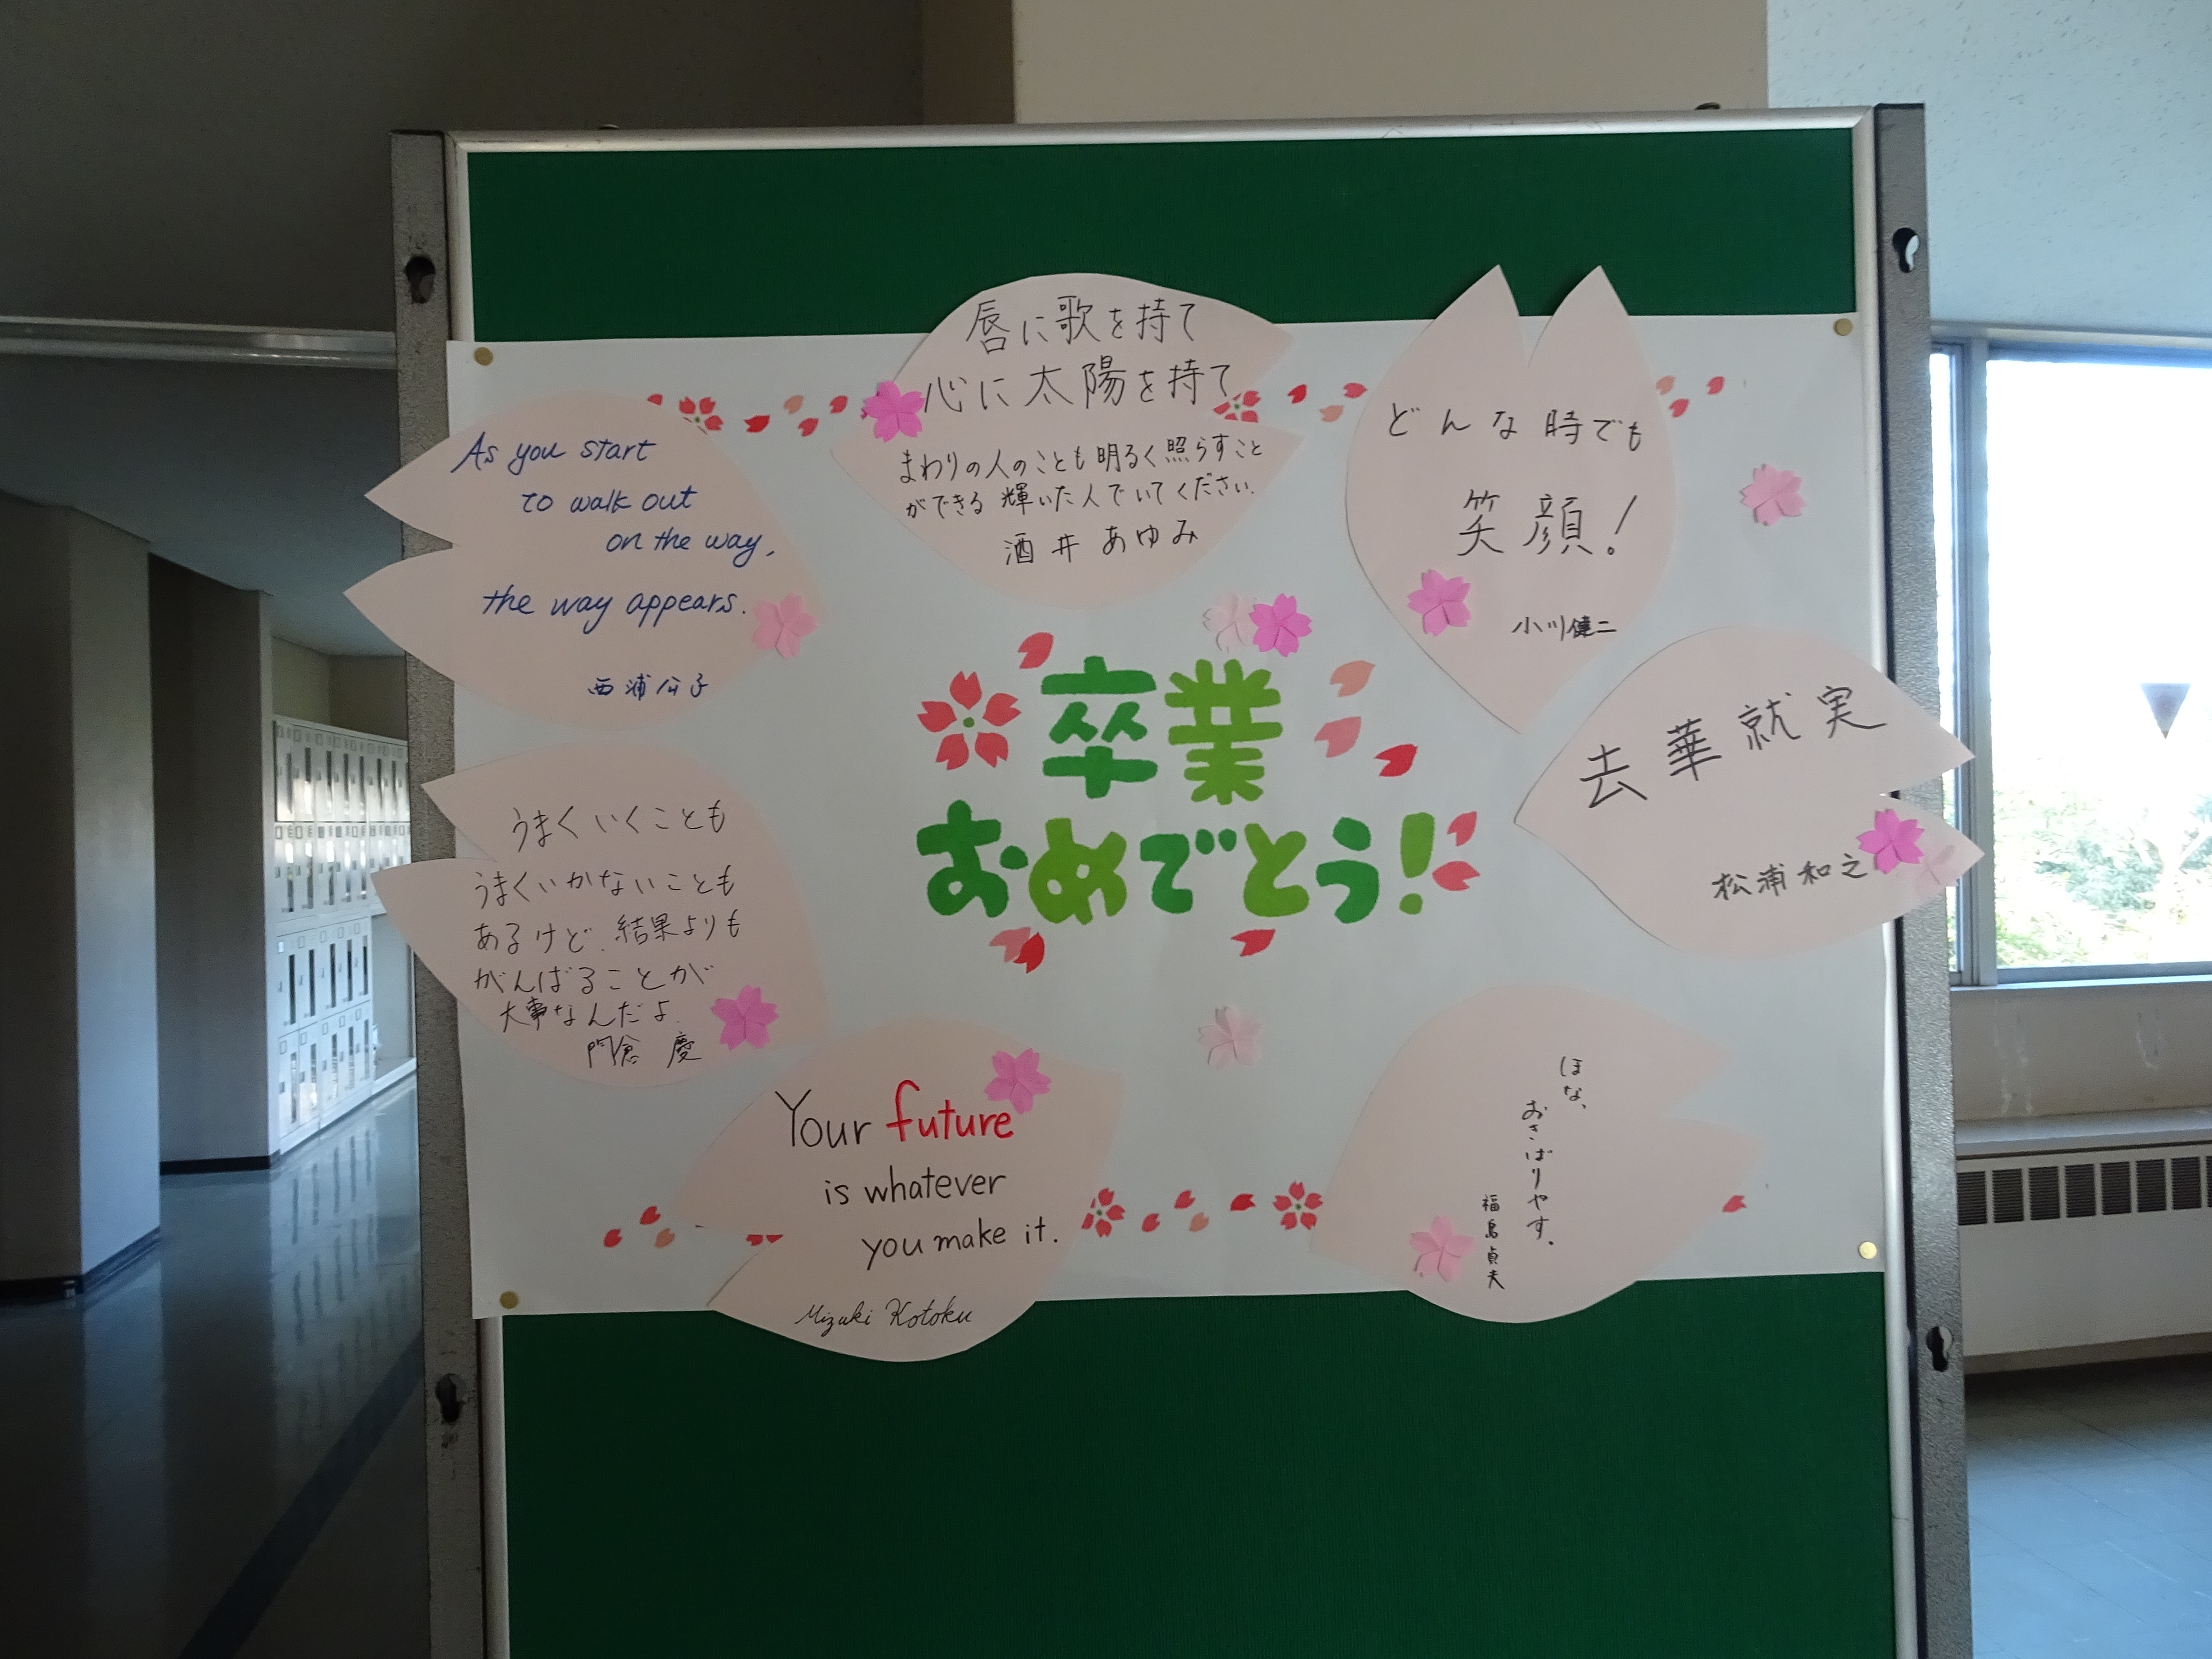 唇に歌を持て
心に太陽を持て
まわりの人のことも明るく照らすこと
ができる 輝いた人でいてください.
酒井あゆみ
どんな時でも
笑顔!
小川健二
As you start
to walk out
on the way,
the way appears.
西浦公子
卒業
おめでとう!
去華就実
松浦和之
うまくいくことも
うまくいかないことも
あるけど、結果よりも
がんばることが
大事なんだよ.
門倉 慶
Your future
is whatever
you make it.
Mizuki Kotoku
ほな、
おきばりやす。
福島貞夫